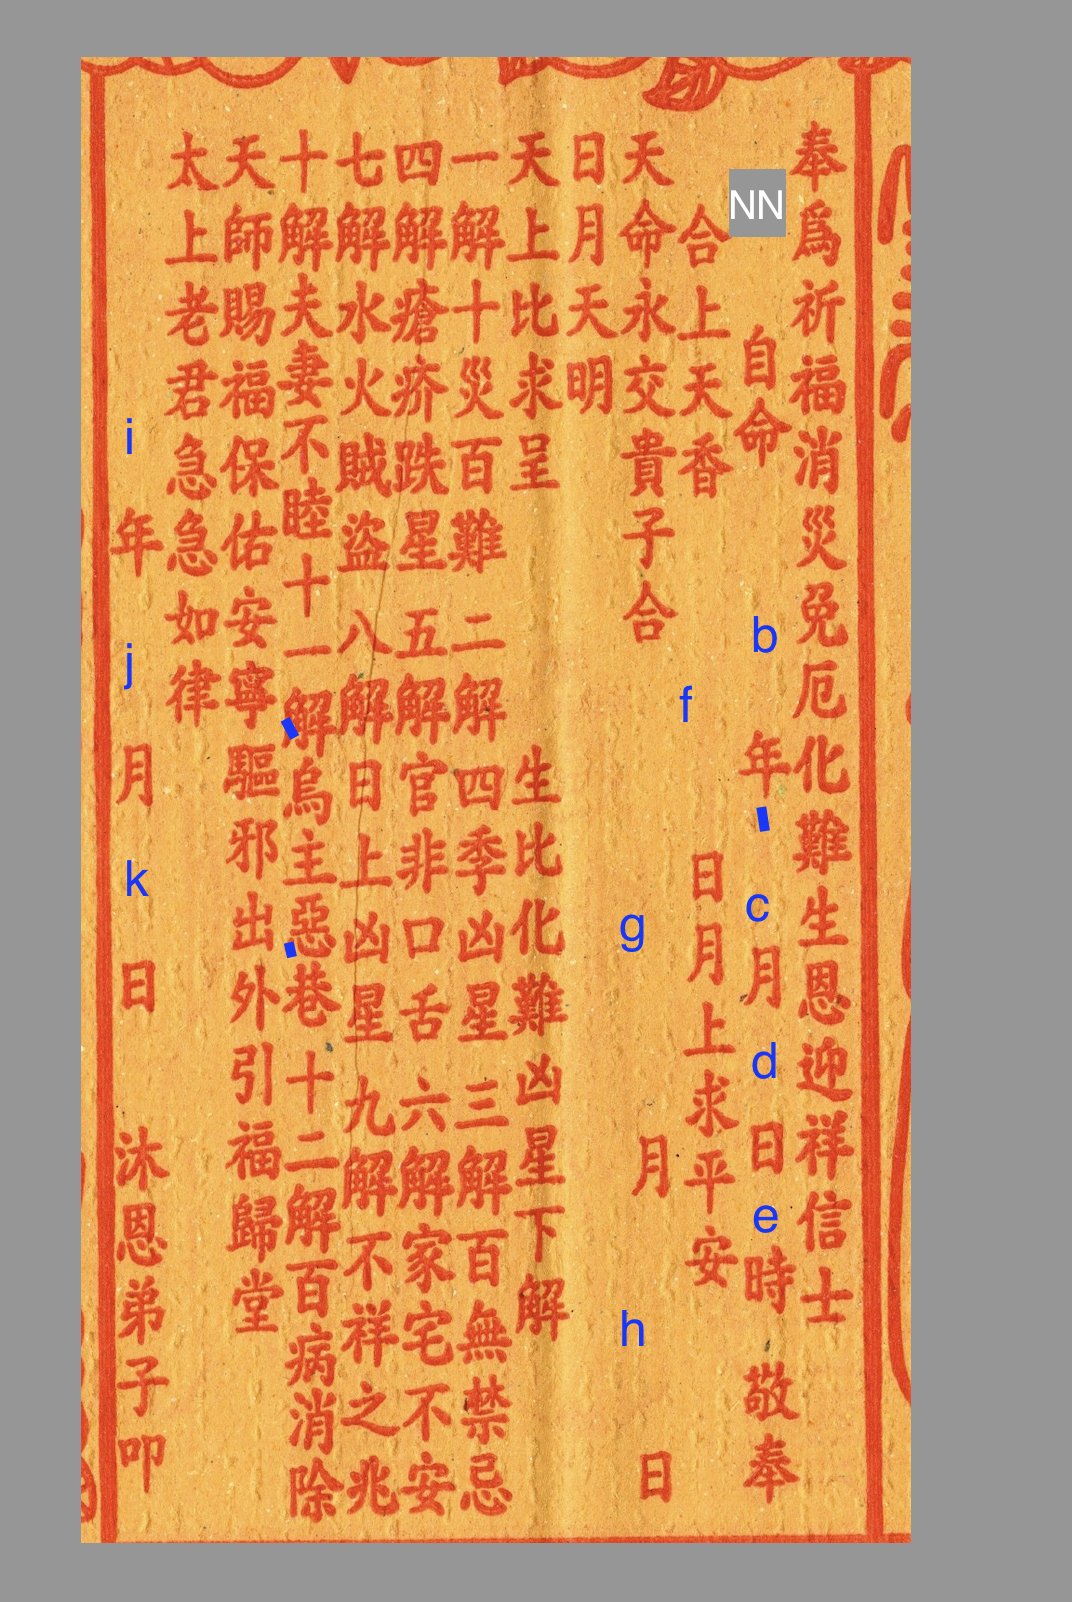 奉爲祈福消災免厄化難生恩迎祥信士
NN 自命 b 年 c 月 d 日 e 時 敬奉
合上天香 f 日月上求平安
天命永交貴子合 g 月 h 日
日月天明
天上比求呈 生比化難凶星下解
一解十災百難 二解四季凶星 三解百無禁忌
四解瘡疥跌星 五解官非口舌 六解家宅不安
七解水火賊盜 八解日上凶星 九解不祥之兆
十解夫妻不睦十一解烏主惡巷 十二解百病消除
天師賜福保佑安寧驅邪出外引福歸堂
太上老君急急如律
i 年 j 月 k 日 沐恩弟子叩